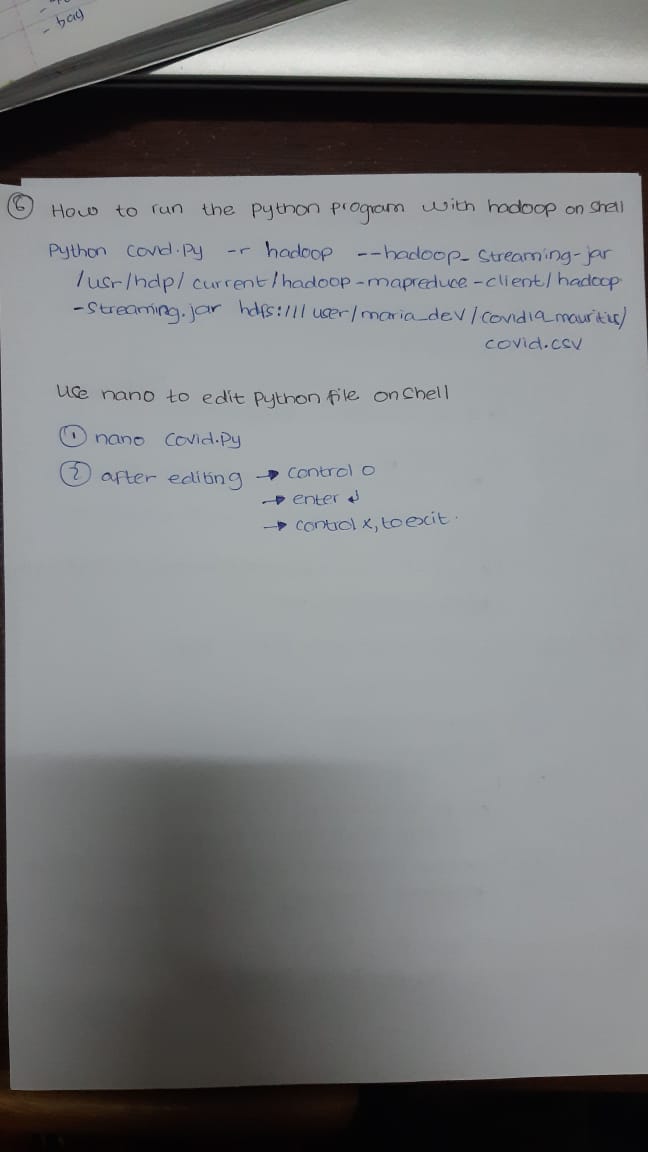 - bag
⑥ How to run the python program with hadoop on shell
Python Covid.Py -r hadoop --hadoop_Streaming-jar
/usr/hdp/current/hadoop-mapreduce-client/hadoop
-Streaming.jar hdfs:///user/maria_dev/covid19_mauritius/
covid.csv
Use nano to edit Python file on shell
① nano Covid.Py
② after editing → control o
→ enter ↲
→ control x, to exit.